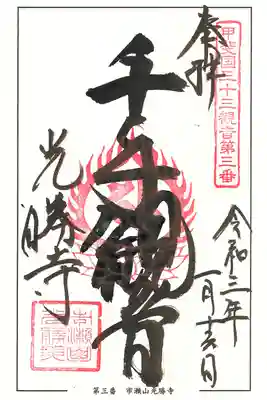 甲斐国三十三観音第三番
奉拝
千手観音
光勝寺
令和三年
一月吉日
市瀬山
光勝寺
第三番　市瀬山光勝寺